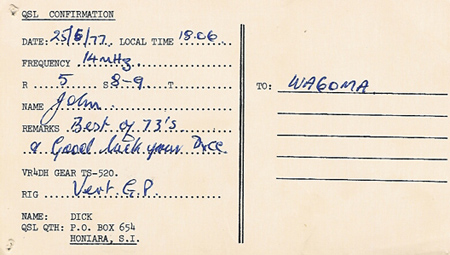 QSL CONFIRMATION
DATE: 25/6/77 LOCAL TIME 18.06
FREQUENCY 14 MHz
R 5 S 8-9 T
NAME John
REMARKS Best of 73's
& Good luck your
VR4DH GEAR TS-520.
RIG Vert. G.P.
NAME: DICK
QSL QTH: P.O. BOX 654
HONIARA, S.I.
TO: WA6OMA